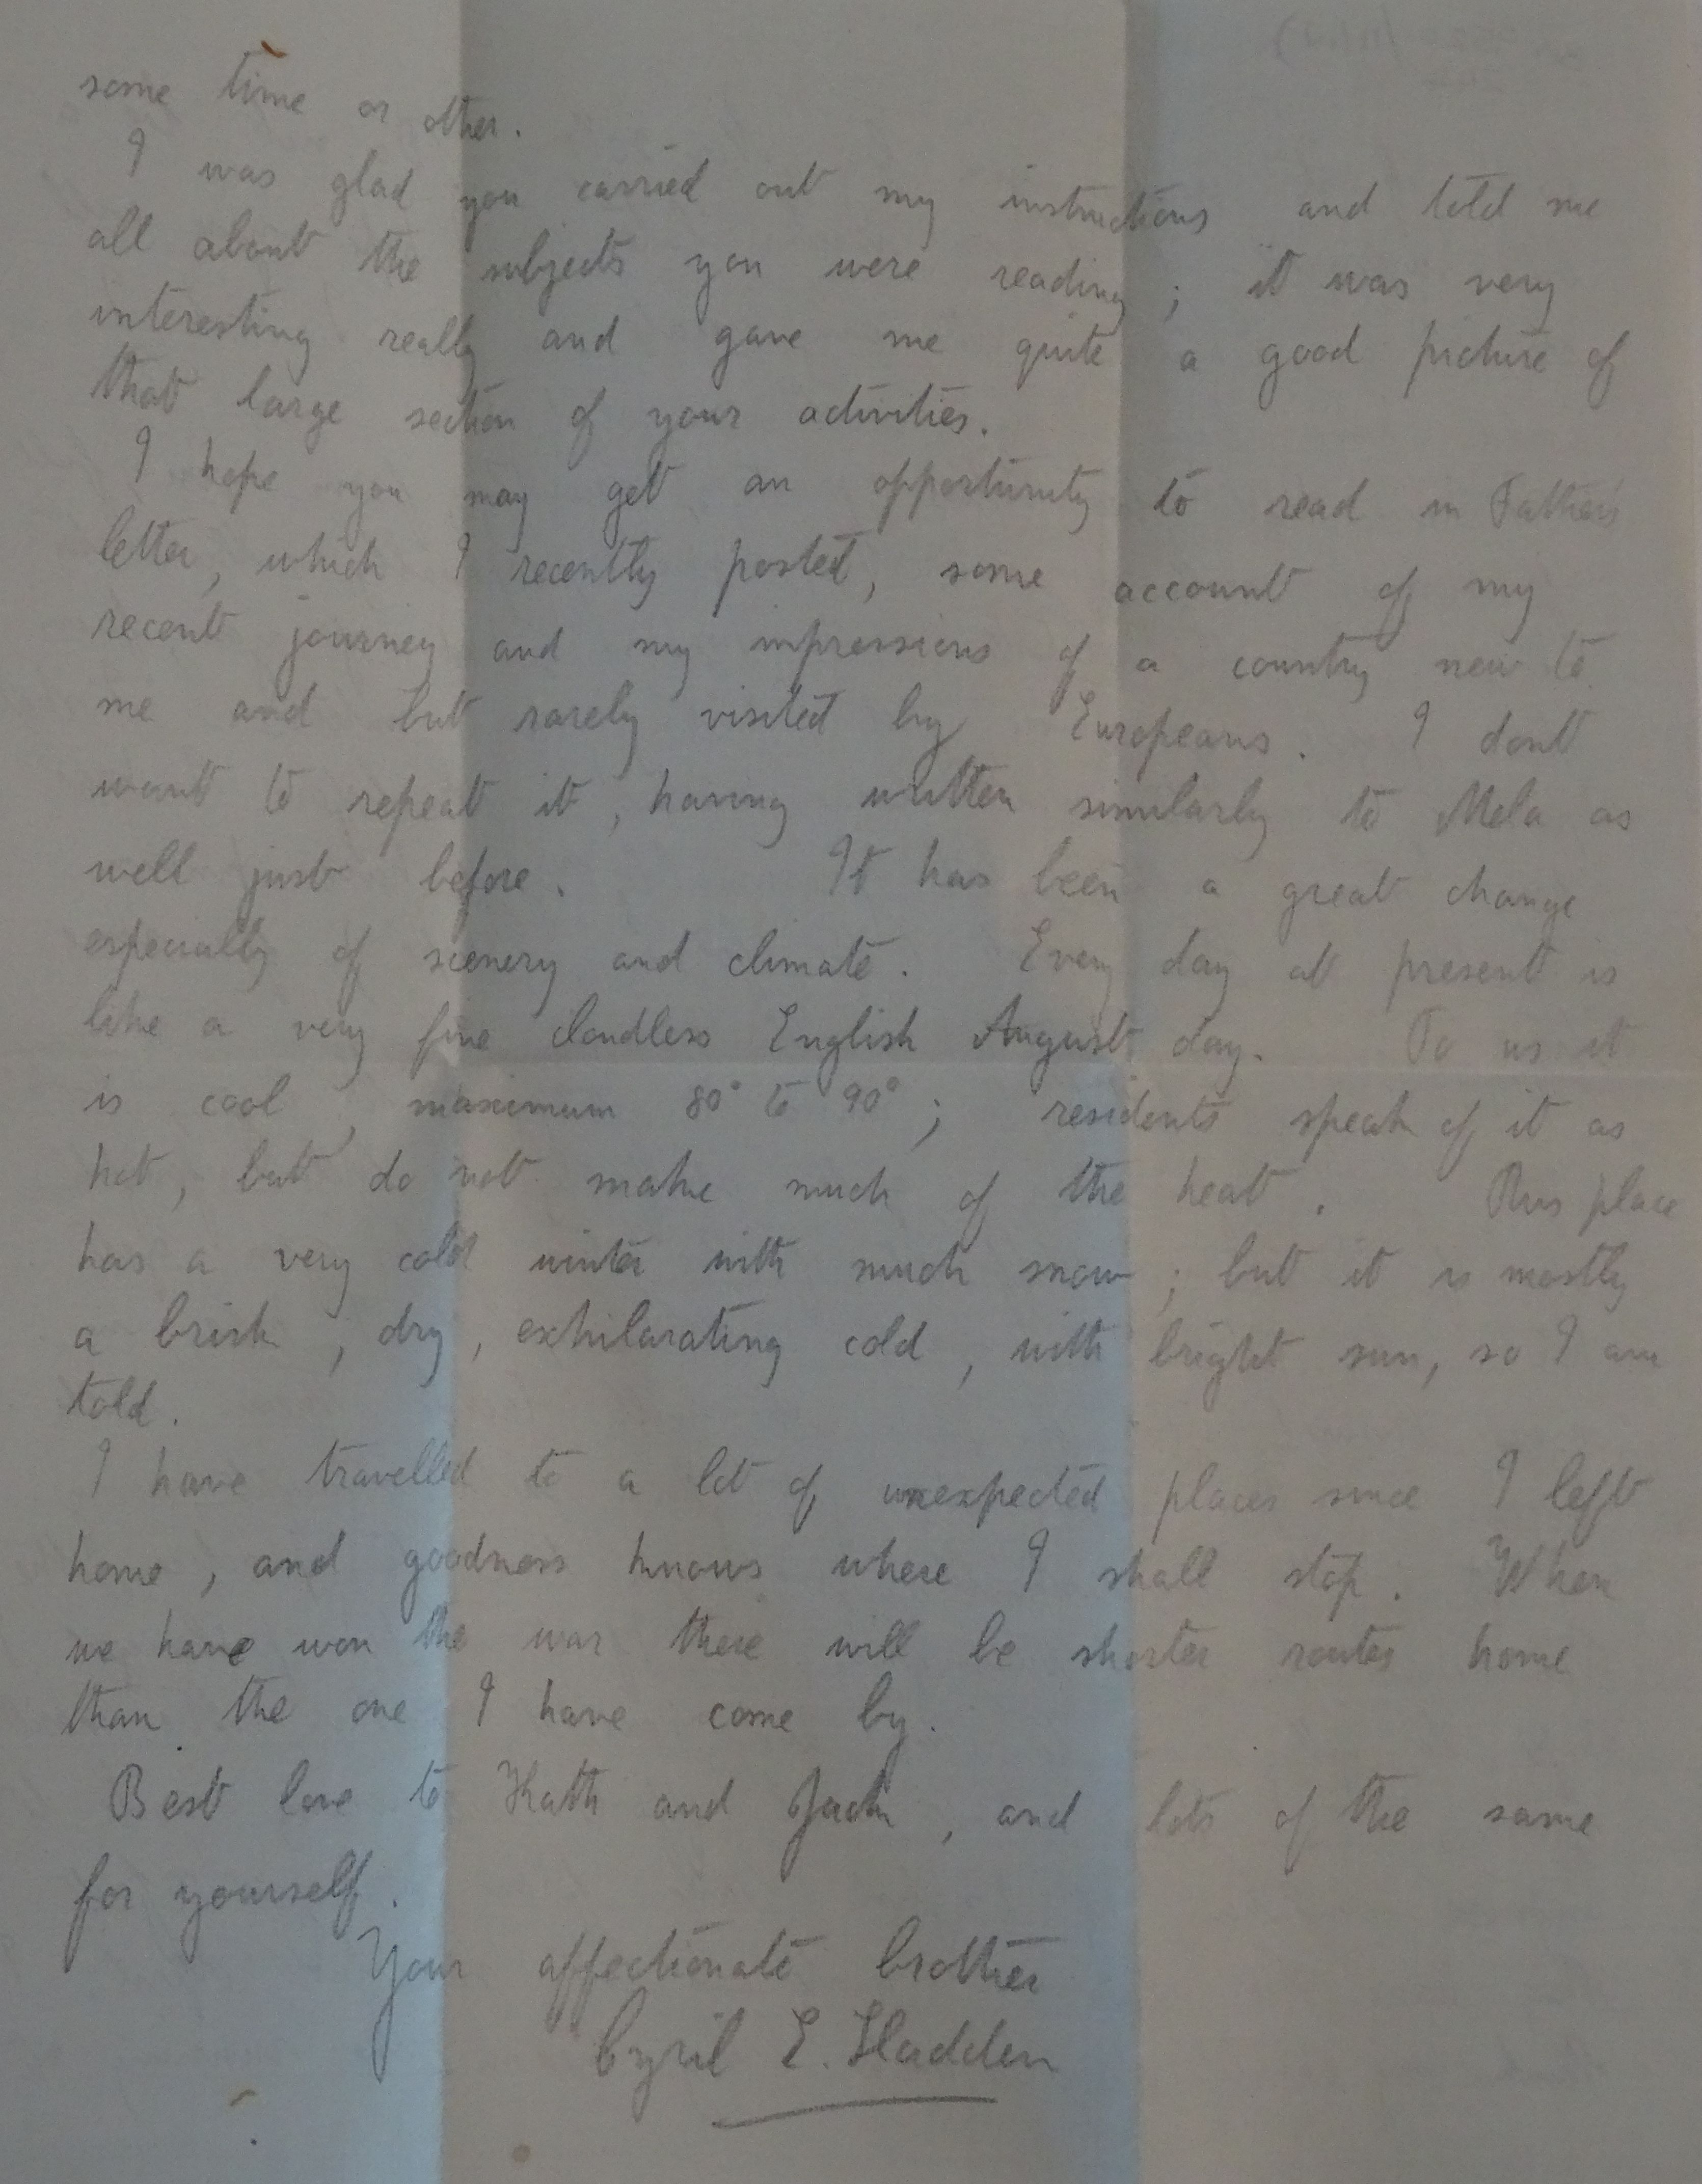 some time or other.
I was glad you carried out my instructions and told me
all about the subjects you were reading; it was very
interesting really and gave me quite a good picture of
that large section of your activities.
I hope you may get an opportunity to read in Father's
letter, which I recently posted, some account of my
recent journey and my impressions of a country new to
me and but rarely visited by Europeans. I dont
want to repeat it, having written similarly to Mela as
well just before. It has been a great change
especially of scenery and climate. Every day at present is
like a very fine cloudless English August day. To us it
is cool, maximum 80° to 90°; residents speak of it as
hot, but do not make much of the heat. This place
has a very cold winter with much snow; but it is mostly
a brisk, dry, exhilarating cold, with bright sun, so I am
told.
I have travelled to a lot of unexpected places since I left
home, and goodness knows where I shall stop. When
we have won the war there will be shorter routes home
than the one I have come by.
Best love to Kath and Jack, and lots of the same
for yourself.
Your affectionate brother
Cyril E. Hadden